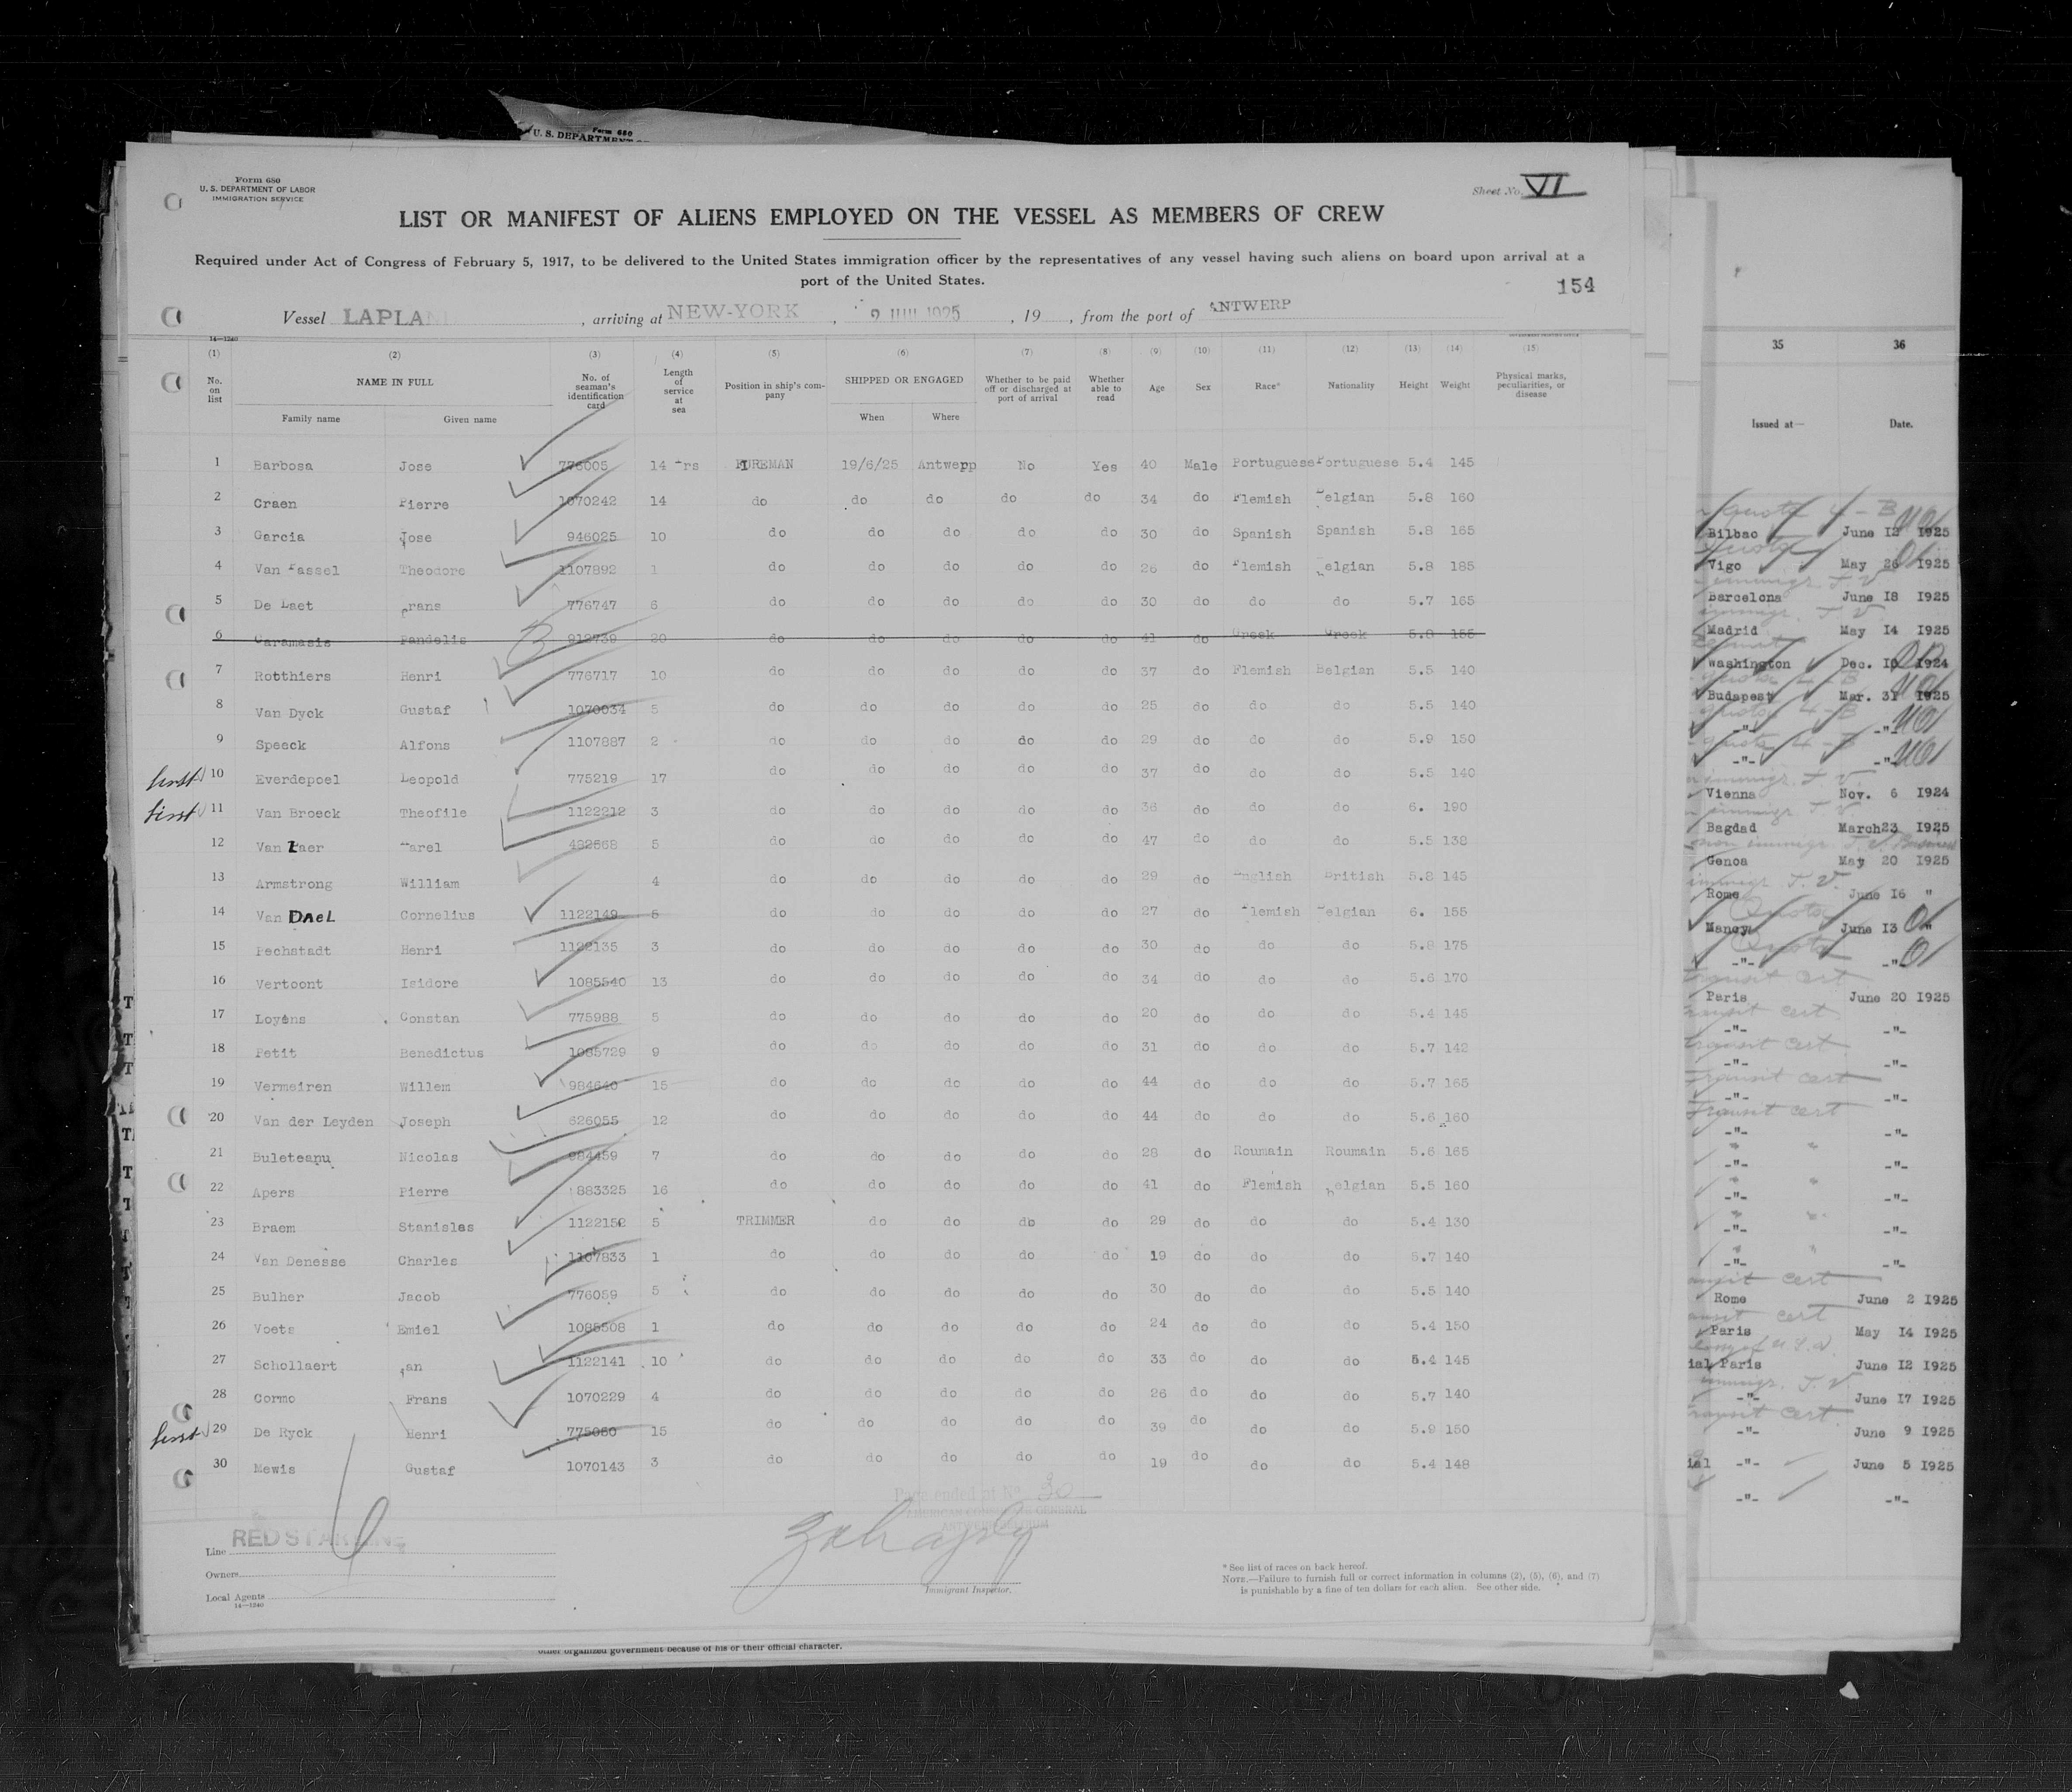 Form 680
U. S. DEPARTMENT OF
Form 680
U. S. DEPARTMENT OF LABOR
IMMIGRATION SERVICE
Sheet No. VI
LIST OR MANIFEST OF ALIENS EMPLOYED ON THE VESSEL AS MEMBERS OF CREW
Required under Act of Congress of February 5, 1917, to be delivered to the United States immigration officer by the representatives of any vessel having such aliens on board upon arrival at a
port of the United States.
154
Vessel LAPLAN , arriving at NEW-YORK , 1925 , 19 , from the port of ANTWERP
14—1240
(1) (2) (3) (4) (5) (6) (7) (8) (9) (10) (11) (12) (13) (14) (15)
No. on list NAME IN FULL Family name Given name No. of seaman's identification card Length of service at sea Position in ship's company SHIPPED OR ENGAGED When Where Whether to be paid off or discharged at port of arrival Whether able to read Age Sex Race* Nationality Height Weight Physical marks, peculiarities, or disease
1 Barbosa Jose 776005 14 rs FIREMAN 19/6/25 Antwerp No Yes 40 Male Portuguese Portuguese 5.4 145
2 Craen Pierre 1070242 14 do do do do do 34 do Flemish Belgian 5.8 160
3 Garcia Jose 946025 10 do do do do do 30 do Spanish Spanish 5.8 165
4 Van Hassel Theodore 1107892 1 do do do do do 26 do Flemish Belgian 5.8 185
5 De Laet Frans 776747 6 do do do do do 30 do do do 5.7 165
6 Caramasis Pandelis 912739 20 do do do do do 41 do Greek Greek 5.8 155
7 Rotthiers Henri 776717 10 do do do do do 37 do Flemish Belgian 5.5 140
8 Van Dyck Gustaf 1070034 5 do do do do do 25 do do do 5.5 140
9 Speeck Alfons 1107887 2 do do do do do 29 do do do 5.9 150
first 10 Everdepoel Leopold 775219 17 do do do do do 37 do do do 5.5 140
first 11 Van Broeck Theofile 1122212 3 do do do do do 36 do do do 6. 190
12 Van Laer Karel 432568 5 do do do do do 47 do do do 5.5 138
13 Armstrong William 4 do do do do do 29 do English British 5.8 145
14 Van DAEL Cornelius 1122149 6 do do do do do 27 do Flemish Belgian 6. 155
15 Pechstadt Henri 1122135 3 do do do do do 30 do do do 5.8 175
16 Vertoont Isidore 1085540 13 do do do do do 34 do do do 5.6 170
17 Loyens Constan 775988 5 do do do do do 20 do do do 5.4 145
18 Petit Benedictus 1085729 9 do do do do do 31 do do do 5.7 142
19 Vermeiren Willem 984640 15 do do do do do 44 do do do 5.7 165
20 Van der Leyden Joseph 626055 12 do do do do do 44 do do do 5.6 160
21 Buleteanu Nicolas 984459 7 do do do do do 28 do Roumain Roumain 5.6 165
22 Apers Pierre 883325 16 do do do do do 41 do Flemish Belgian 5.5 160
23 Braem Stanislas 1122152 5 TRIMMER do do do do 29 do do do 5.4 130
24 Van Denesse Charles 1107833 1 do do do do do 19 do do do 5.7 140
25 Bulher Jacob 776059 5 do do do do do 30 do do do 5.5 140
26 Voets Emiel 1085508 1 do do do do do 24 do do do 5.4 150
27 Schollaert Jan 1122141 10 do do do do do 33 do do do 5.4 145
28 Cormo Frans 1070229 4 do do do do do 26 do do do 5.7 140
first 29 De Ryck Henri 775060 15 do do do do do 39 do do do 5.9 150
30 Mewis Gustaf 1070143 3 do do do do do 19 do do do 5.4 148
Page ended at No 30
AMERICAN CONSULATE GENERAL
ANTWERP BELGIUM
Line RED STAR LINE
Owners
Local Agents
14—1240
Immigrant Inspector.
* See list of races on back hereof.
NOTE.—Failure to furnish full or correct information in columns (2), (5), (6), and (7)
is punishable by a fine of ten dollars for each alien. See other side.
other organized government because of his or their official character.
35 36
Issued at— Date.
quota 4-B
Bilbao June 12 1925
Quota
Vigo May 26 1925
immigr. T.V.
Barcelona June 18 1925
immigr. T.V.
Madrid May 14 1925
Washington Dec. 10 1924
quota 4-B
Budapest Mar. 31 1925
quota 4-B
-"- -"-
quota 4-B
-"- -"-
immigr. T.V.
Vienna Nov. 6 1924
immigr. T.V.
Bagdad March 23 1925
non immigr. T.V. Business
Genoa May 20 1925
immigr. T.V.
Rome June 16 "
Quota
Nancy June 13 "
Quota
-"- -"-
transit cert
Paris June 20 1925
transit cert
-"- -"-
transit cert
-"- -"-
transit cert
-"- -"-
transit cert
-"- -"-
" "
-"- -"-
" "
-"- -"-
" "
-"- -"-
" "
-"- -"-
transit cert
Rome June 2 1925
transit cert
Paris May 14 1925
ial Paris June 12 1925
immigr. T.V.
-"- June 17 1925
transit cert.
-"- June 9 1925
ial -"- June 5 1925
-"- -"-